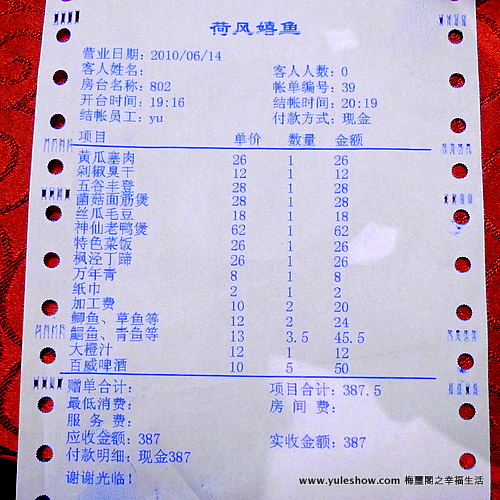 荷风嬉鱼
营业日期: 2010/06/14
客人姓名: 客人人数: 0
房台名称: 802 帐单编号: 39
开台时间: 19:16 结帐时间: 20:19
结帐员工: yu 付款方式: 现金
项目 单价 数量 金额
黄瓜塞肉 26 1 26
剁椒臭干 12 1 12
五谷丰登 28 1 28
菌菇面筋煲 28 1 28
丝瓜毛豆 18 1 18
神仙老鸭煲 62 1 62
特色菜饭 26 1 26
枫泾丁蹄 26 1 26
万年青 8 1 8
纸巾 2 1 2
加工费 10 2 20
鲫鱼、草鱼等 12 2 24
鮰鱼、青鱼等 13 3.5 45.5
大橙汁 12 1 12
百威啤酒 10 5 50
赠单合计: 项目合计: 387.5
最低消费: 房间费:
服务费:
应收金额: 387 实收金额: 387
付款明细: 现金387
谢谢光临!
www.yuleshow.com 梅薑閣之幸福生活